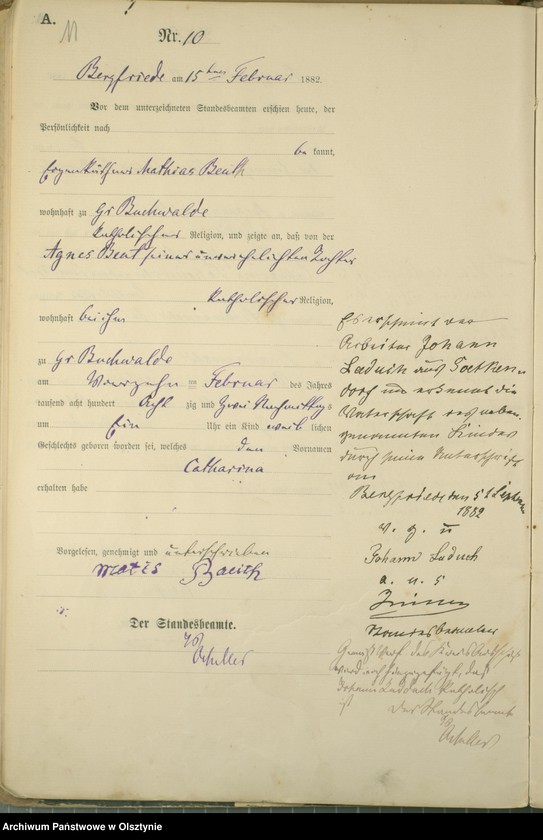 A.
11
Nr. 10
Bergfriede am 15ten Februar 1882.
Vor dem unterzeichneten Standesbeamten erschien heute, der
Persönlichkeit nach
bekannt,
Eigenkäthner Mathias Beuth
wohnhaft zu Gr Buchwalde
katholischer Religion, und zeigte an, daß von der
Agnes Beut seiner unverehelichten Tochter
katholischer Religion,
wohnhaft bei ihm
zu Gr Buchwalde
am Vierzehn ten Februar des Jahres
tausend acht hundert Acht zig und Zwei Nachmittags
um Ein Uhr ein Kind weib lichen
Geschlechts geboren worden sei, welches den Vornamen
Catharina
erhalten habe
Vorgelesen, genehmigt und unterschrieben
Matis
Der Standesbeamte.
Es erscheint der
Arbeiter Johann
Laduch aus
doch und erkennt die
Vaterschaft des neben
genannten Kindes
durch seine Unterschrift
an
Bergfriede den
1882
v. g. u
Johann Laduch
a. u. s
Standesbeamter
ward noch hinzugefügt, daß
Johann Laduch katholisch
ist
Der Standesbeamte
Archiwum Państwowe w Olsztynie